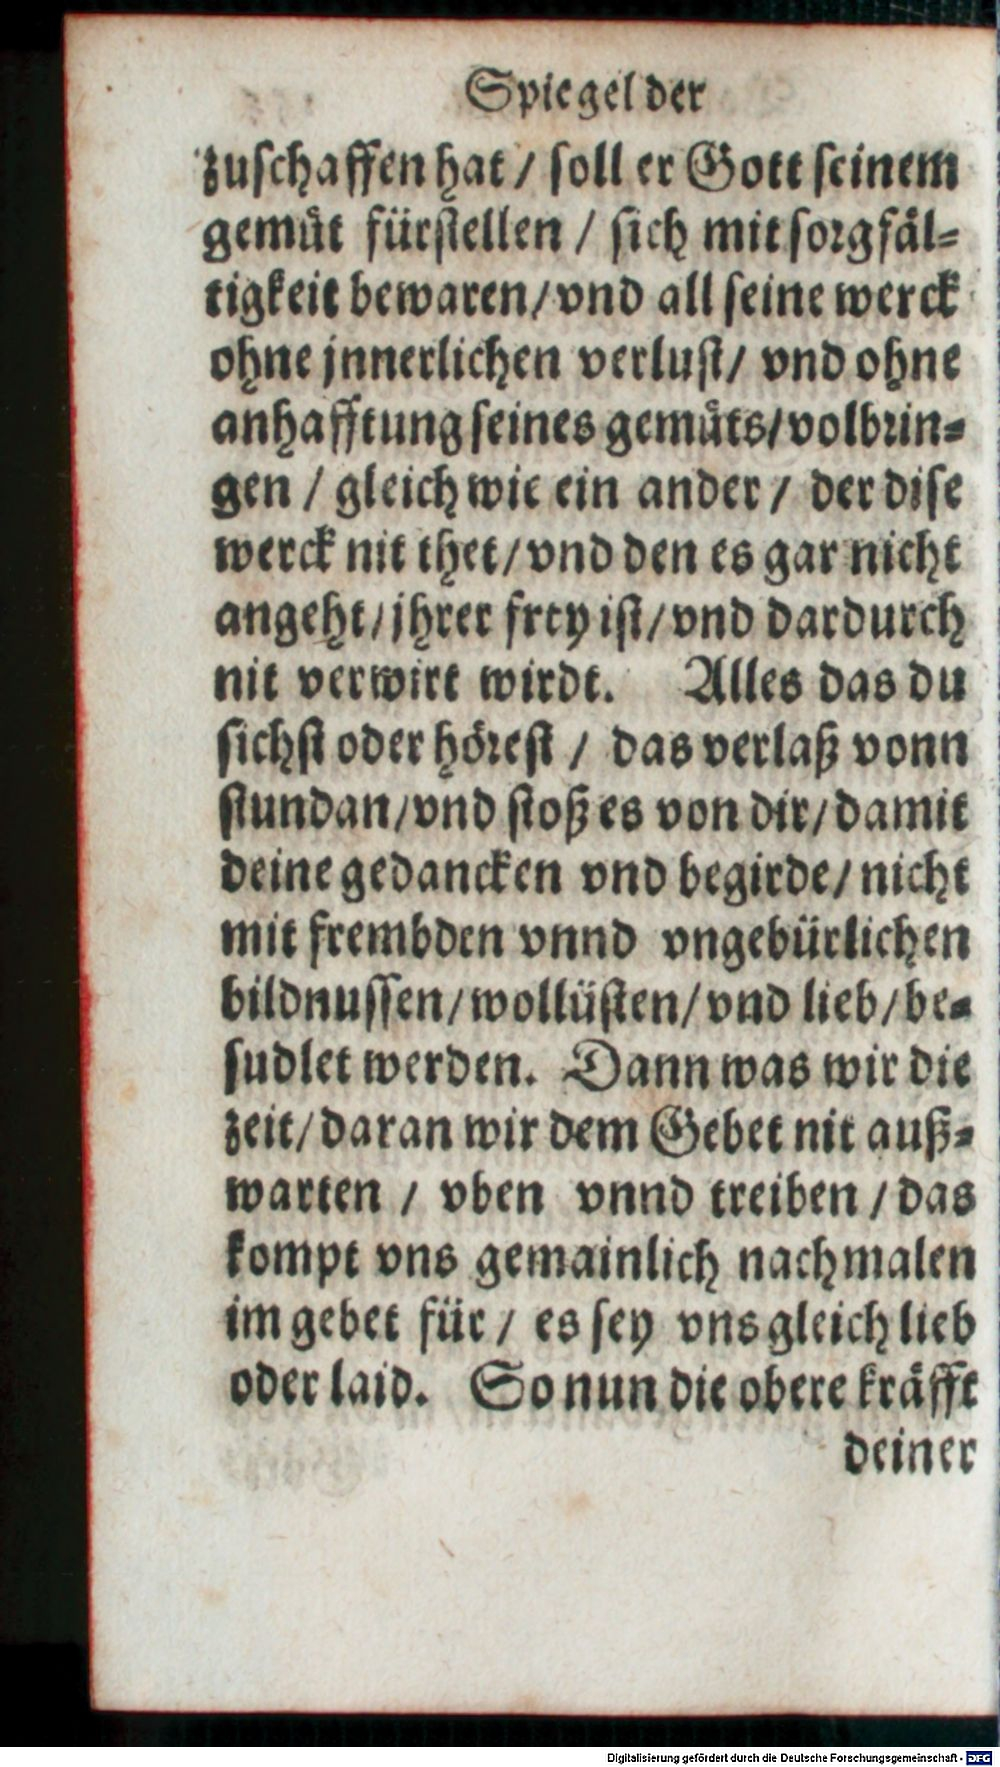 Spiegel der
zuschaffen hat / soll er Gott seinem
gemuͤt fürstellen / sich mit sorgfäl⸗
tigkeit bewaren / vnd all seine werck
ohne jnnerlichen verlust / vnd ohne
anhafftung seines gemuͤts / volbrin⸗
gen / gleich wie ein ander / der dise
werck nit thet / vnd den es gar nicht
angeht / jhrer frey ist / vnd dardurch
nit verwirt wirdt. Alles das du
sichst oder hörest / das verlaß vonn
stundan / vnd stoß es von dir / damit
deine gedancken vnd begirde / nicht
mit frembden vnnd vngebürlichen
bildnussen / wollüsten / vnd lieb / be⸗
sudlet werden. Dann was wir die
zeit / daran wir dem Gebet nit auß⸗
warten / vben vnnd treiben / das
kompt vns gemainlich nachmalen
im gebet für / es sey vns gleich lieb
oder laid. So nun die obere kräfft
deiner
Digitalisierung gefördert durch die Deutsche Forschungsgemeinschaft - DFG